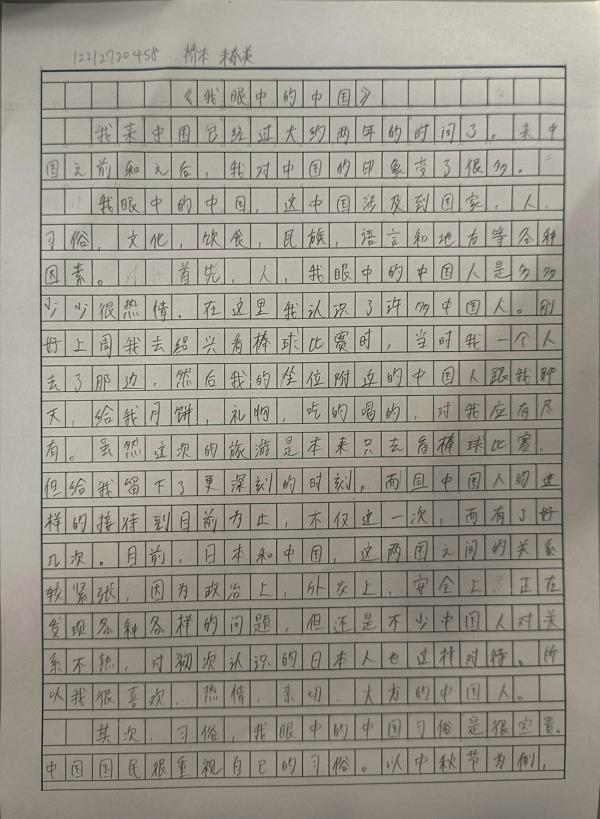 12212720458 桥本
《我眼中的中国》
我来中国已经过大约两年的时间了。来中
国之前和之后，我对中国的印象变了很多。
我眼中的中国，这中国涉及到国家，人，
习俗，文化，饮食，民族，语言和地方等各种
因素。 首先，人，我眼中的中国人是多多
少少很热情。在这里我认识了许多中国人。刚
好上周我去绍兴看棒球比赛时，当时我一个人
去了那边，然后我的坐位附近的中国人跟我聊
天，给我月饼，礼物，吃的喝的，对我应有尽
有。虽然这次的旅游是本来只去看棒球比赛，
但给我留下了更深刻的时刻，而且中国人的这
样的接待到目前为止，不仅这一次，而有了好
几次。目前，日本和中国，这两国之间的关系
较紧张，因为政治上，外交上，安全上 正在
发现各种各样的问题，但还是不少中国人对关
系不熟，对初次认识的日本人也这样对待。所
以我很喜欢，热情，亲切，大方的中国人。
其次，习俗，我眼中的中国习俗是很宝贵。
中国国民很重视自己的习俗。以中秋节为例，